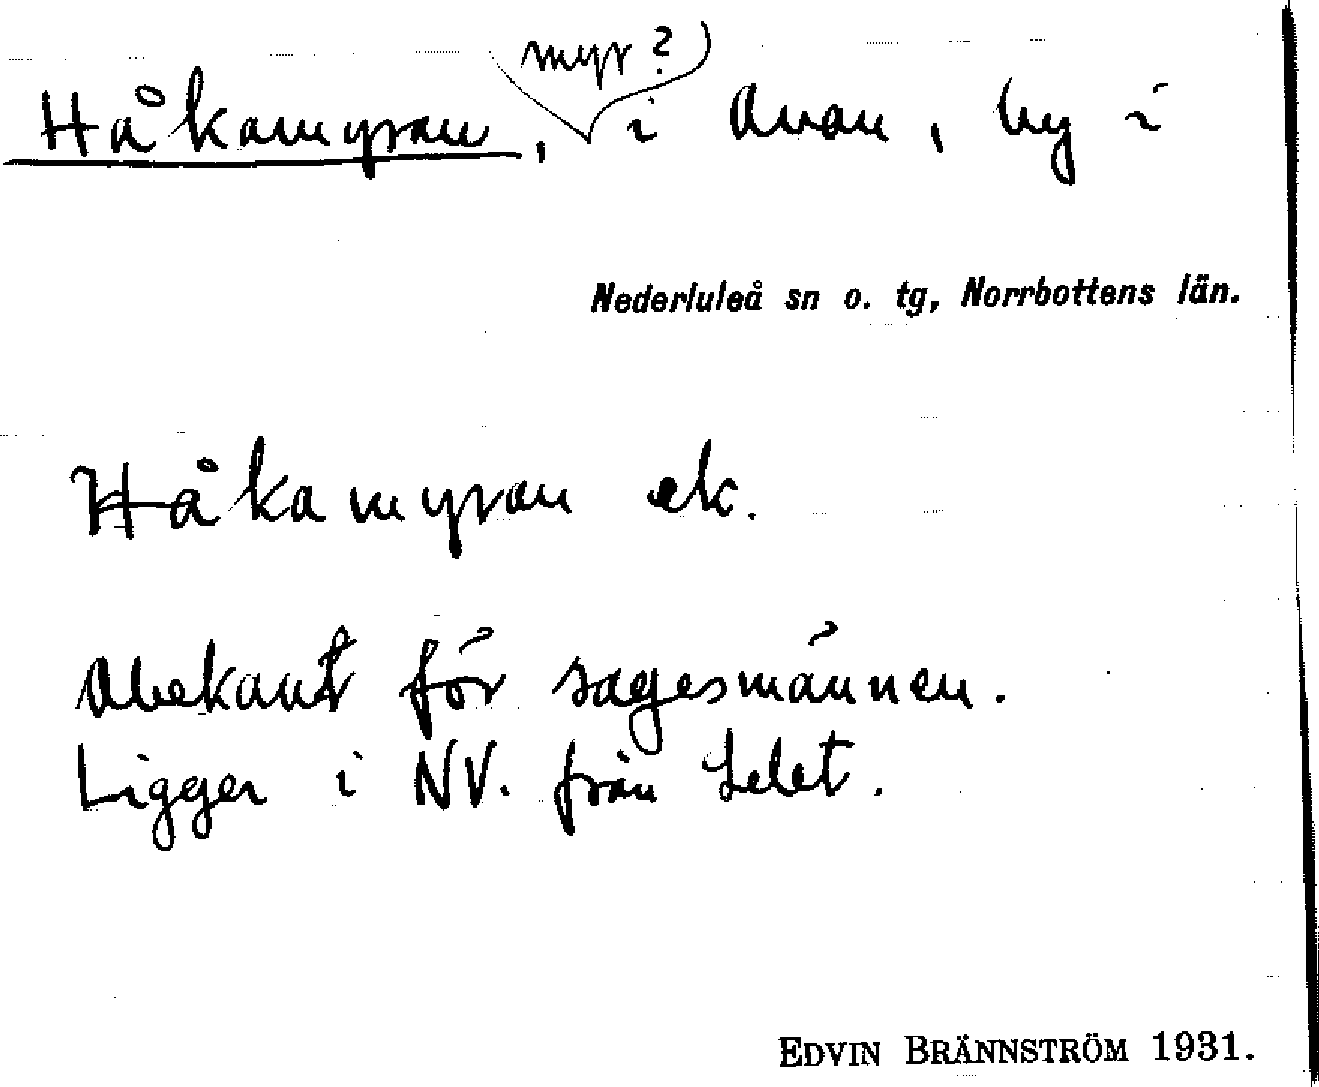 myr?
Håkamyran, i Avan, by i
Nederluleå sn o. tg, Norrbottens län.
Håkamyran ek.
Obekant för sagesmännen.
Ligger i NV. från Selet.
EDVIN BRÄNNSTRÖM 1931.